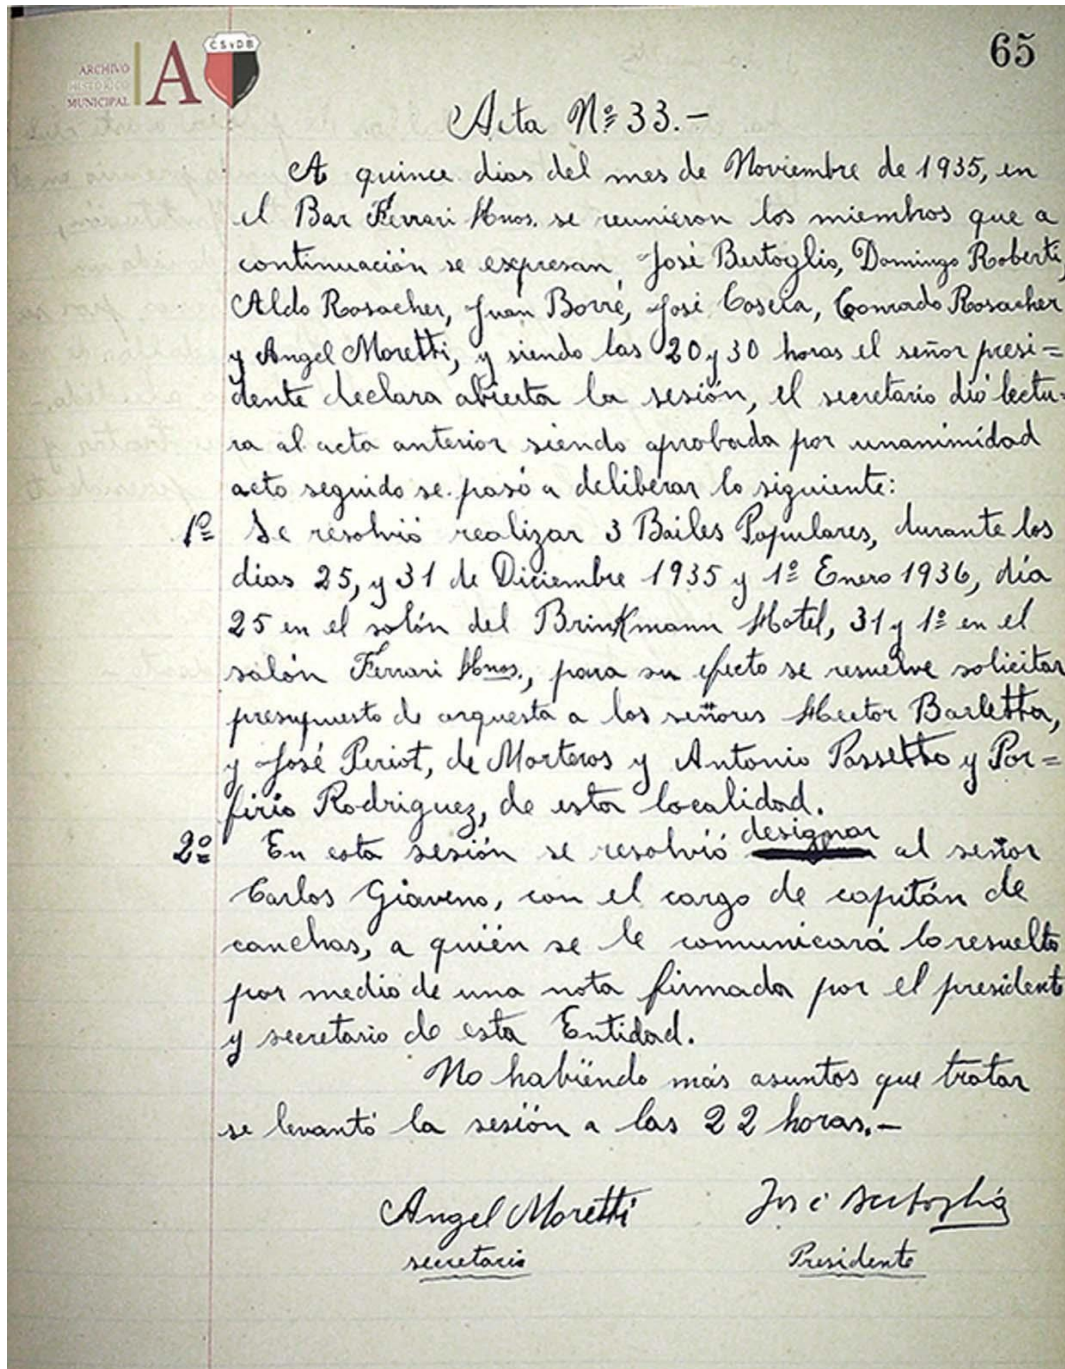 ARCHIVO
HISTORICO
MUNICIPAL
A
C S y D B
65
Acta Nº 33.-
A quince dias del mes de Noviembre de 1935, en
el Bar Ferrari Hnos. se reunieron los miembros que a
continuación se expresan, José Bertoglio, Domingo Roberti,
Aldo Rosacher, Juan Borré, José Coseia, Conrado Rosacher
y Angel Moretti, y siendo las 20 y 30 horas el señor presi=
dente declara abierta la sesión, el secretario dió lectu=
ra al acta anterior siendo aprobada por unanimidad
acto seguido se pasó a deliberar lo siguiente:
1º Se resolvió realizar 3 Bailes Populares, durante los
dias 25, y 31 de Diciembre 1935 y 1º Enero 1936, día
25 en el salón del Brinkmann Hotel, 31 y 1º en el
salón Ferrari Hnos., para su efecto se resuelve solicitar
presupuesto de orquesta a los señores Hector Barletta,
y José Periot, de Morteros y Antonio Passetto y Por=
firio Rodriguez, de esta localidad.
2º En esta sesión se resolvió designar al señor
Carlos Giaveno, con el cargo de capitán de
canchas, a quién se le comunicará lo resuelto
por medio de una nota firmada por el presidente
y secretario de esta Entidad.
No habiendo más asuntos que tratar
se levantó la sesión a las 22 horas.-
Angel Moretti José Bertoglio
secretario Presidente